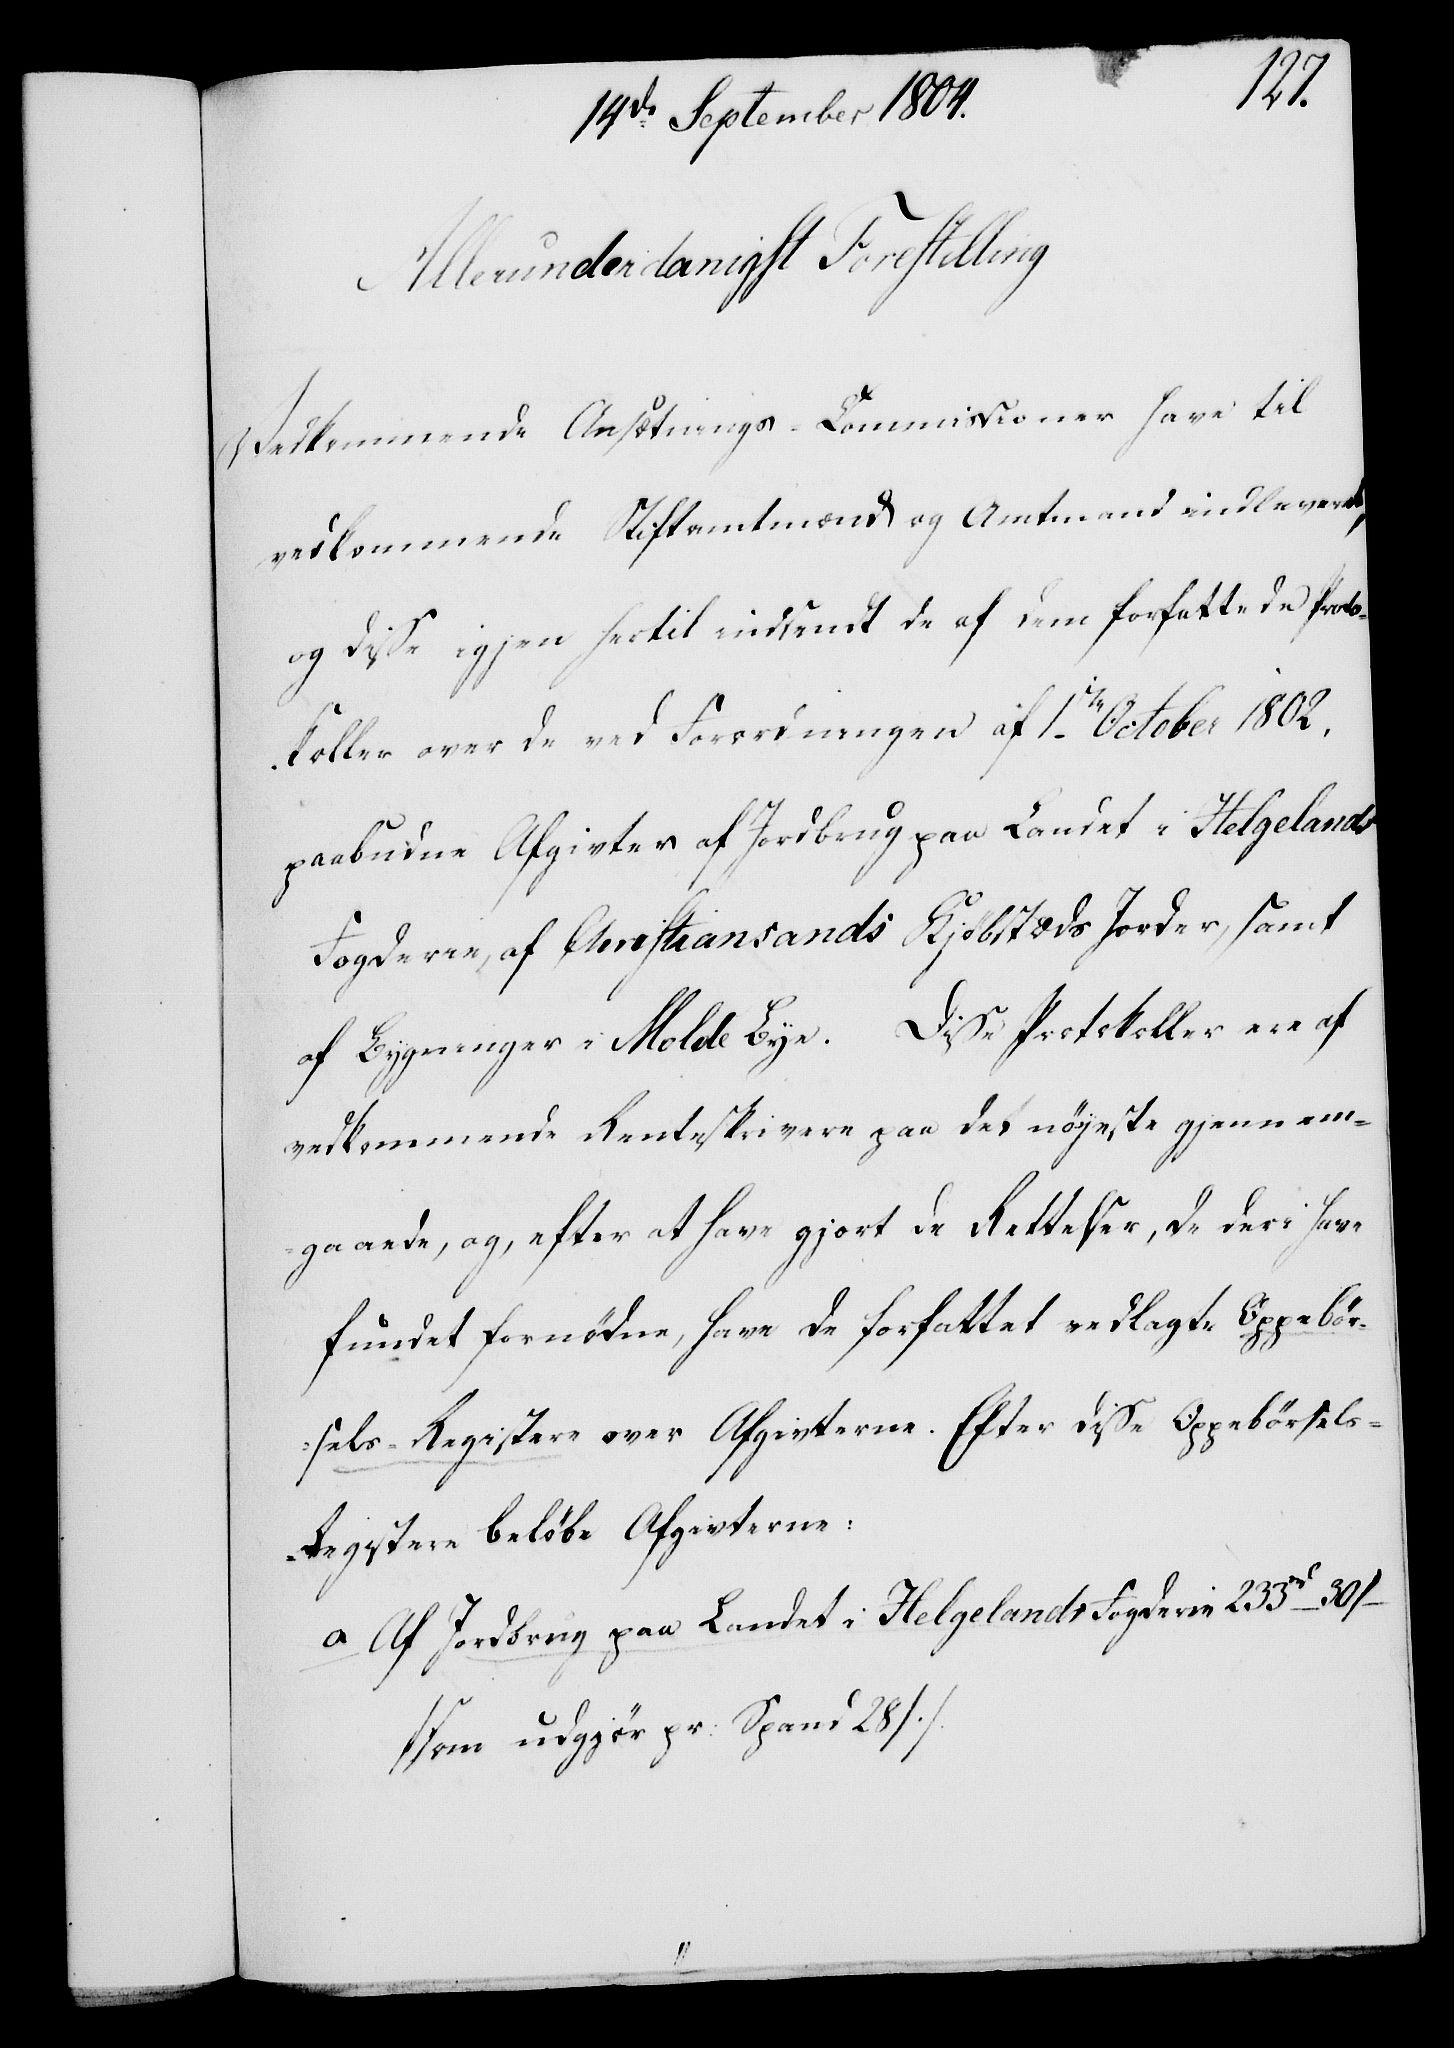 14de September 1804.
127.
Allerunderdanigst Forestilling
Vedkommende Ansætnings-Commissioner have til
vedkommende Stiftamtmænd og Amtmænd indleveret,
og disse igjen hertil indsendt de af dem forfattede Proto-
koller over de ved Forordningen af 1te October 1802.
paabudne Afgivter af Jordbrug paa Landet i Helgelands
Fogderie, af Christiansands Kjøbstæds Jorder, samt
af Bygninger i Molde Bye. Disse Protokoller ere af
vedkommende Renteskrivere paa det nøjeste gjennem-
=gaaede, og, efter at have gjort de Rettelser, de deri have
fundet fornødne, have de forfattet vedlagte Oppebör-
:sels-Registere over Afgivterne. Efter disse Oppebörsels-
=Registere beløbe Afgivterne:
a Af Jordbrug paa Landet i Helgelands Fogderie 233rd 30s
/:som udgjör pr: Spand 28s:/.